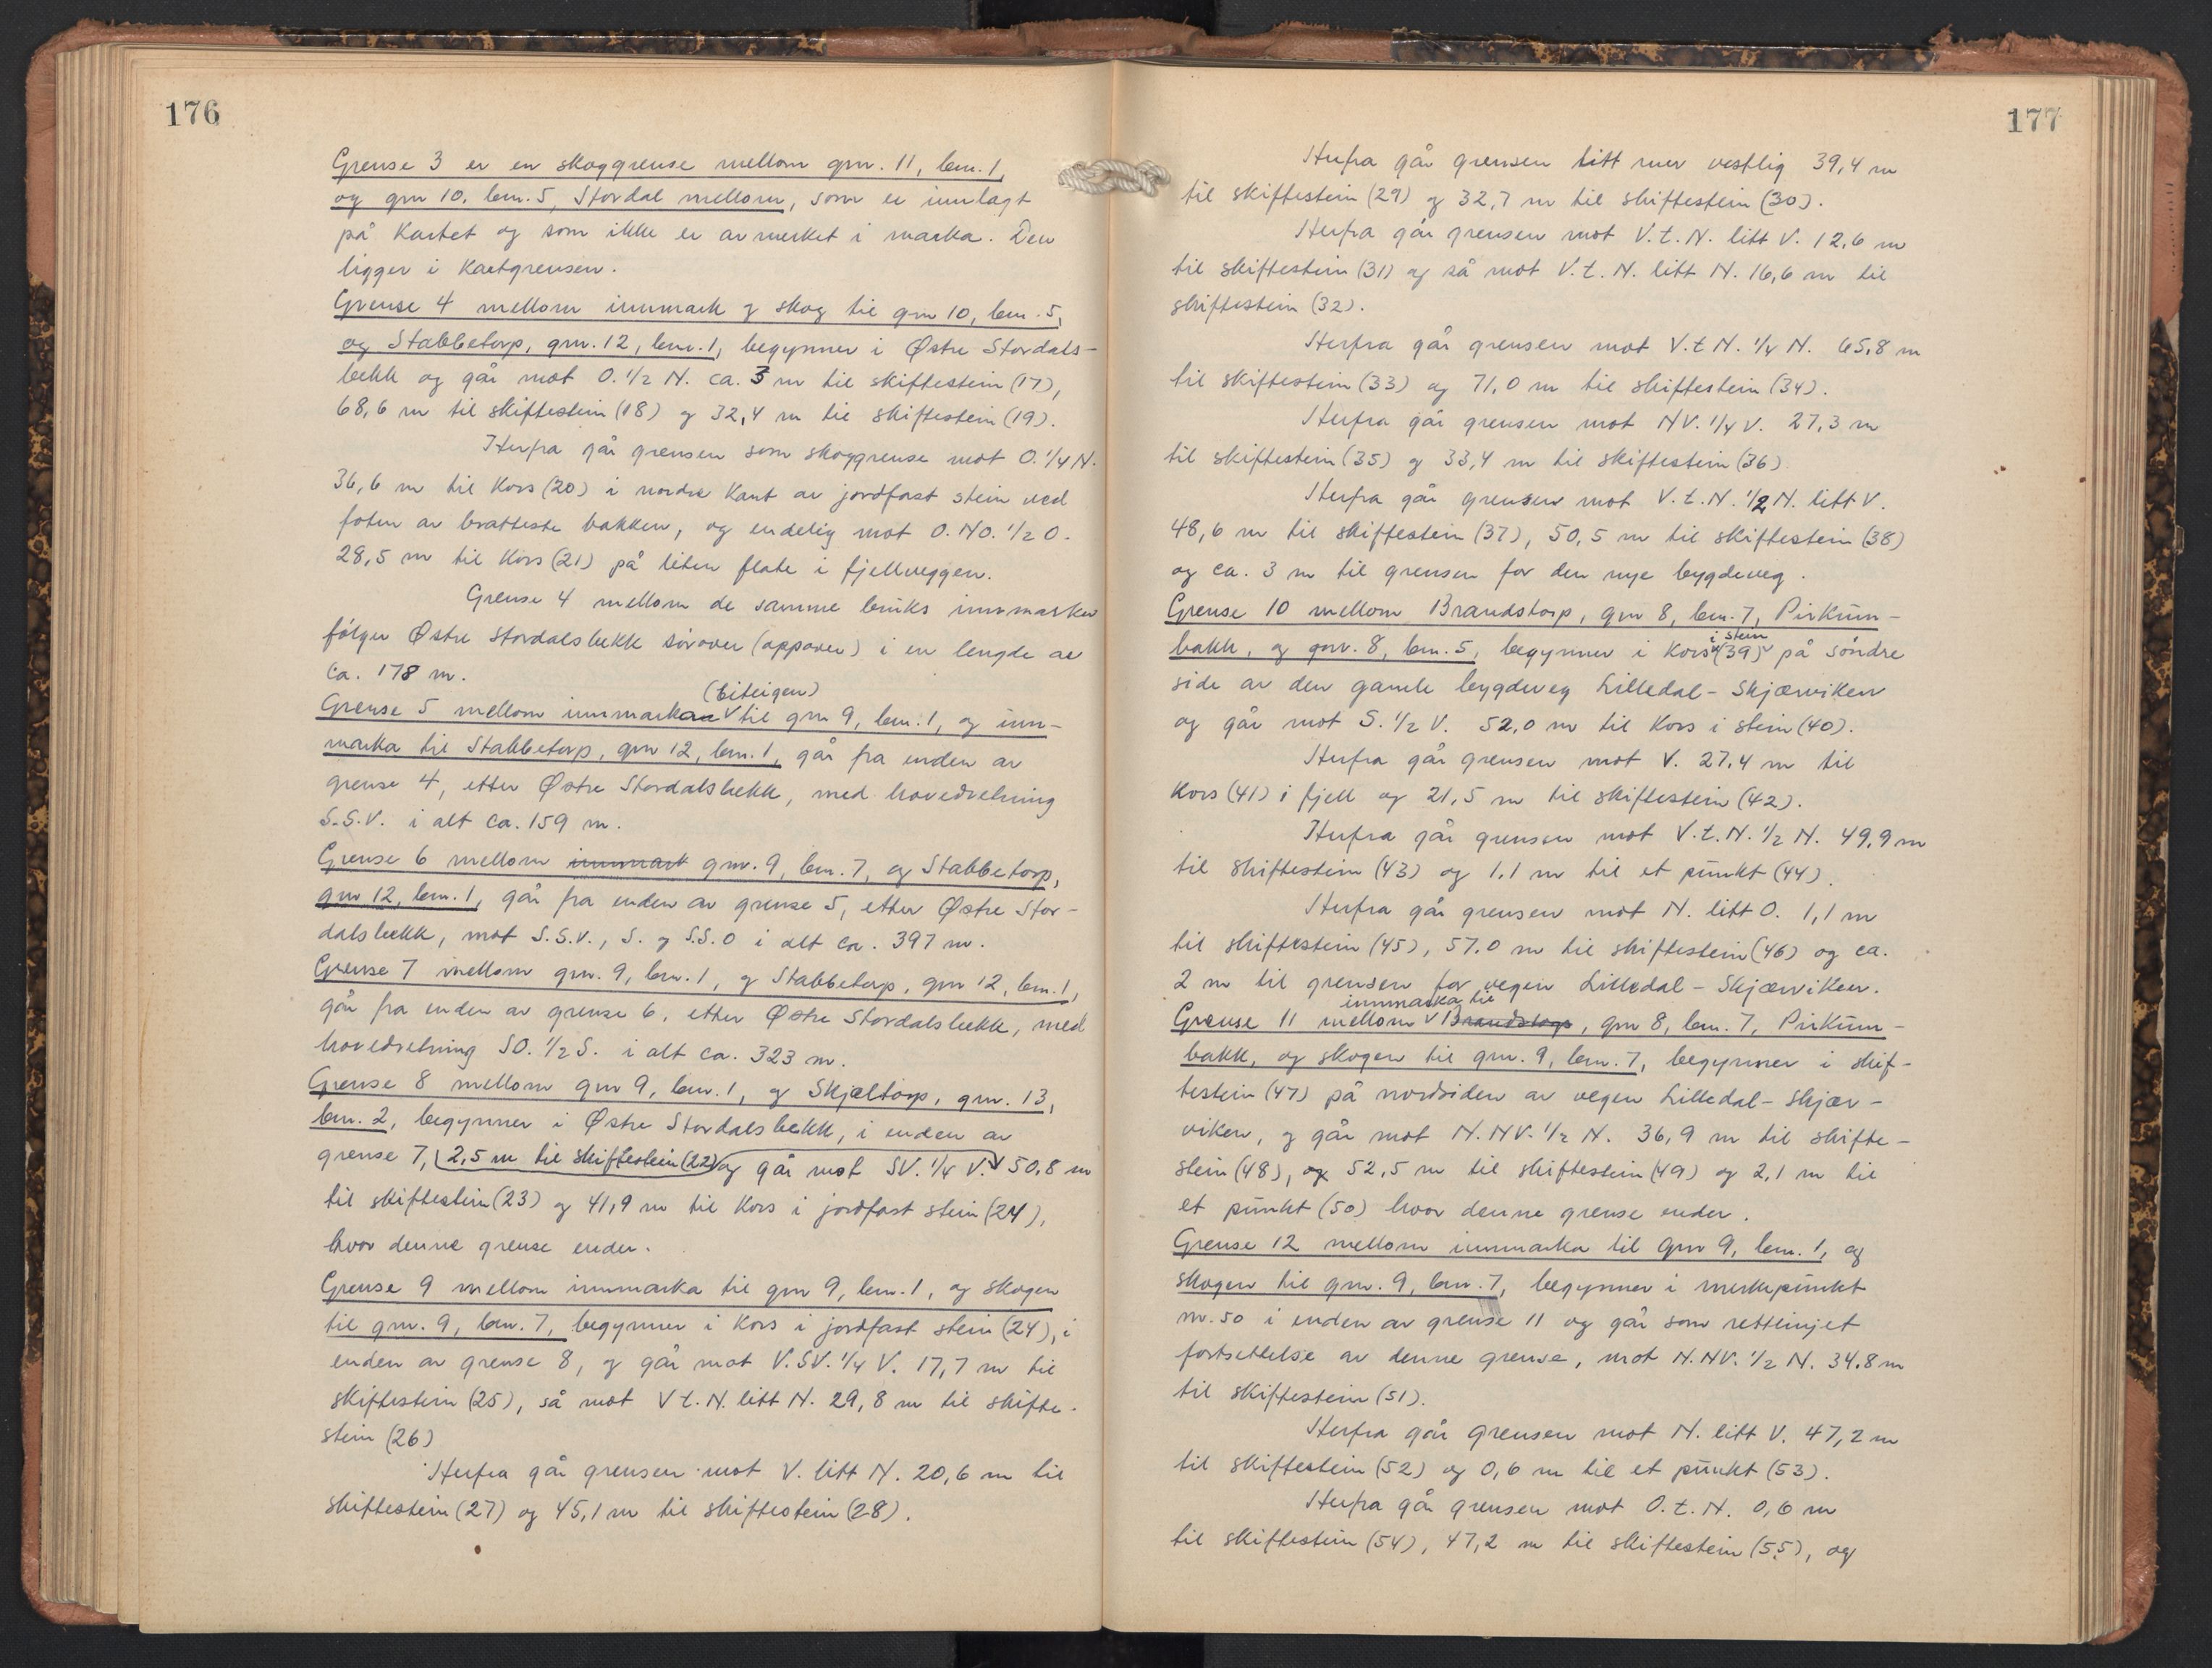 176
Grense 3 er en skoggrense mellom gnr. 11, bnr. 1,
og gnr 10, bnr. 5, Stordal mellom, som er innlagt
på Kartet og som ikke er avmerket i marka. Den
ligger i Kartgrensen.
Grense 4 mellom innmark og skog til gnr 10, bnr. 5,
og Stabbetorp, gnr. 12, bnr. 1, begynner i Østre Stordals-
bekk og går mot O. 1/2 N. ca. 3 m til skiftestein (17),
68,6 m til skiftestein (18) og 32,4 m til skiftestein (19).
Herfra går grensen som skoggrense mot O. 1/4 N.
36,6 m til Kors (20) i nordre Kant av jordfast stein ved
foten av bratteste bakken, og endelig mot O. NO. 1/2 O.
28,5 m til Kors (21) på liten flate i fjellveggen.
Grense 4 mellom de samme bruks innmarker
følger Østre Stordalsbekk sørover (oppover) i en lengde av
ca. 178 m.
(Eiteigen)
Grense 5 mellom innmarkaa til gnr 9, bnr. 1, og inn-
marka til Stabbetorp, gnr 12, bnr. 1, går fra enden av
grense 4, etter Østre Stordalsbekk, med hovedretning
S.S.V. i alt ca. 159 m.
Grense 6 mellom innmark gnr. 9, bnr. 7, og Stabbetorp,
gnr 12, bnr. 1, går fra enden av grense 5, etter Østre Stor-
dalsbekk, mot S.S.V., S. og S.S.O i alt ca. 397 m.
Grense 7 mellom gnr. 9, bnr. 1, og Stabbetorp, gnr 12, bnr. 1,
går fra enden av grense 6, etter Østre Stordalsbekk, med
hovedretning SO. 1/2 S. i alt ca. 323 m.
Grense 8 mellom gnr 9, bnr. 1, og Skjæltorp, gnr. 13,
bnr. 2, begynner i Østre Stordalsbekk, i enden av
grense 7, 2,5 m til skiftestein (22) og går mot SV. 1/4 V. 50,8 m
til skiftestein (23) og 41,9 m til Kors i jordfast stein (24),
hvor denne grense ender.
Grense 9 mellom innmarka til gnr 9, bnr. 1, og skogen
til gnr. 9, bnr. 7, begynner i Kors i jordfast stein (24), i
enden av grense 8, og går mot V. SV. 1/4 V. 17,7 m til
skiftestein (25), så mot V t. N. litt N. 29,8 m til skifte-
stein (26)
Herfra går grensen mot V. litt N. 20,6 m til
skiftestein (27) og 45,1 m til skiftestein (28).
177
Herfra går grensen litt mer vestlig 39,4 m
til skiftestein (29) og 32,7 m til skiftestein (30).
Herfra går grensen mot V. t. N. litt V. 12,6 m
til skiftestein (31) og så mot V. t. N. litt N. 16,6 m til
skiftestein (32).
Herfra går grensen mot V. t N. 1/4 N. 65,8 m
til skiftestein (33) og 71,0 m til skiftestein (34).
Herfra går grensen mot NV. 1/4 V. 27,3 m
til skiftestein (35) og 33,4 m til skiftestein (36)
Herfra går grensen mot V. t. N. 1/2 N. litt V.
48,6 m til skiftestein (37), 50,5 m til skiftestein (38)
og ca. 3 m til grensen for den nye bygdeveg.
Grense 10 mellom Brandstorp, gnr 8, bnr. 7, Pirkum-
i stein
bakk, og gnr. 8, bnr. 5, begynner i Kors (39) på søndre
side av den gamle bygdeveg Lilledal - Skjærviken
og går mot S. 1/2 V. 52,0 m til Kors i stein (40).
Herfra går grensen mot V. 27,4 m til
Kors (41) i fjell og 21,5 m til skiftestein (42).
Herfra går grensen mot V. t. N. 1/2 N. 49,9 m
til skiftestein (43) og 1,1 m til et punkt (44).
Herfra går grensen mot N. litt O. 1,1 m
til skiftestein (45), 57,0 m til skiftestein (46) og ca.
2 m til grensen for vegen Lilledal - Skjærviken.
innmarka til
Grense 11 mellom Brandstorp, gnr 8, bnr. 7, Pirkum-
bakk, og skogen til gnr. 9, bnr. 7, begynner i skif-
testein (47) på nordsiden av vegen Lilledal - Skjær-
viken, og går mot N. NV. 1/2 N. 36,9 m til skifte-
stein (48), og 52,5 m til skiftestein (49) og 2,1 m til
et punkt (50) hvor denne grense ender.
Grense 12 mellom innmarka til gnr 9, bnr. 1, og
skogen til gnr. 9, bnr. 7, begynner i merkepunkt
nr. 50 i enden av grense 11 og går som rettlinjet
fortsettelse av denne grense, mot N. NV. 1/2 N. 34,8 m
til skiftestein (51).
Herfra går grensen mot N. litt V. 47,2 m
til skiftestein (52) og 0,6 m til et punkt (53).
Herfra går grensen mot O. t. N. 0,6 m
til skiftestein (54), 47,2 m til skiftestein (55), og